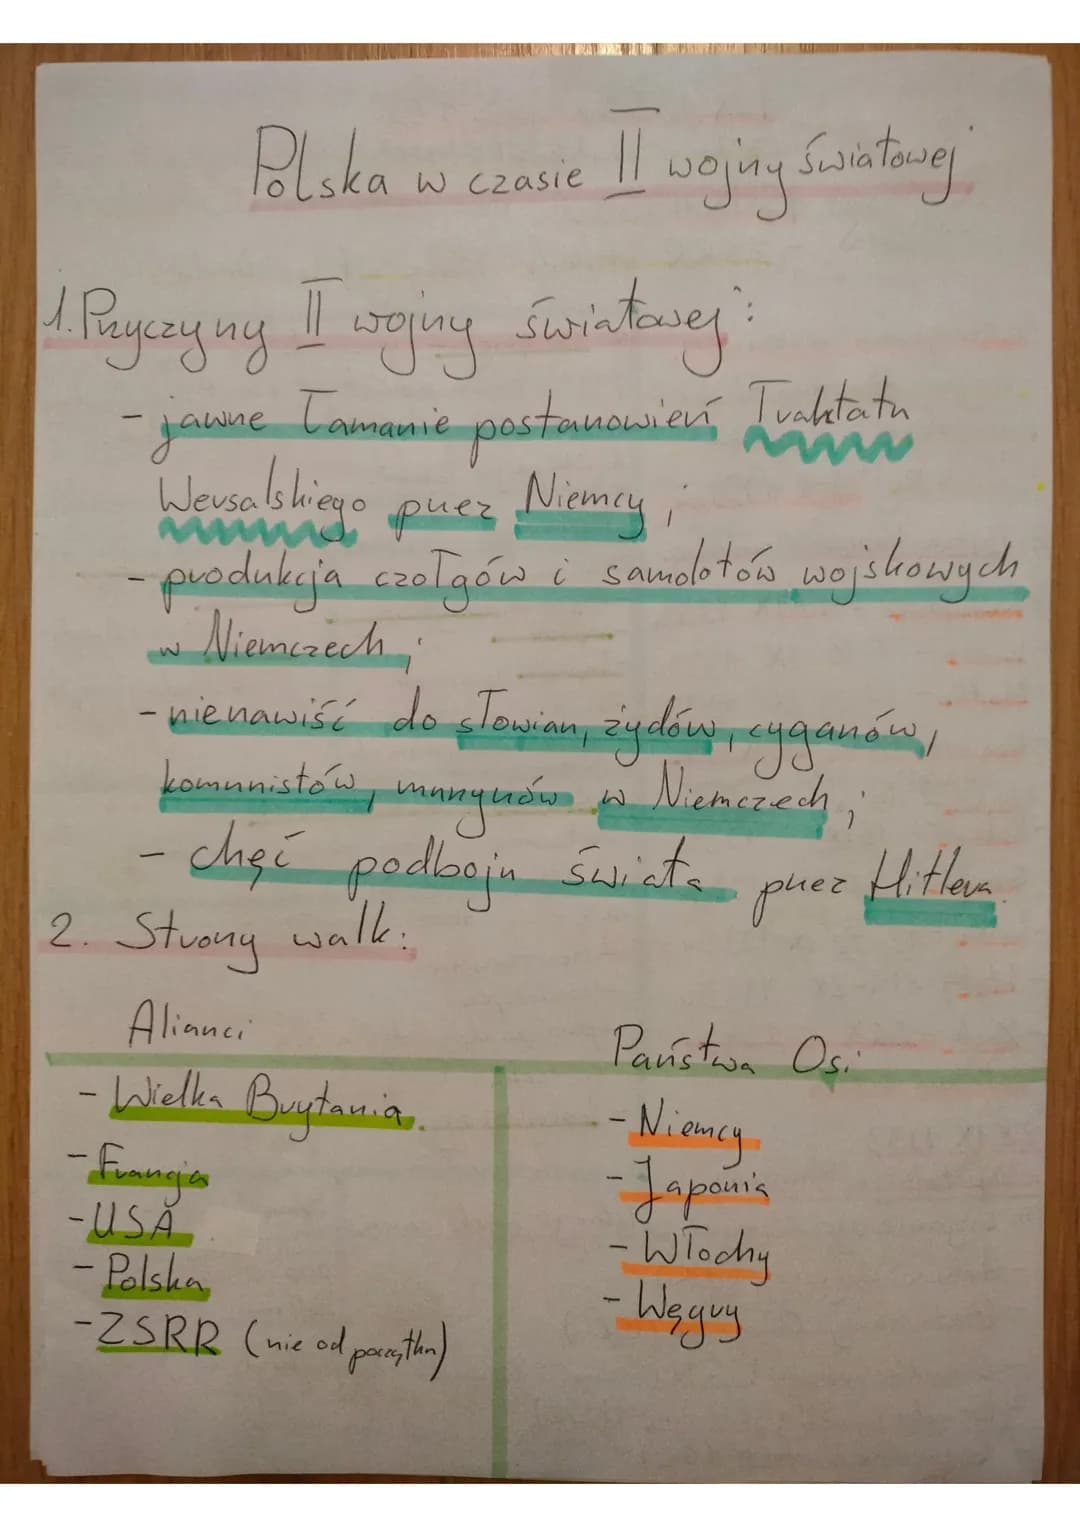 Polska w czasie II wojny światowej
1. Przyczyny II wojny światowej:
- jawne łamanie postanowień Traktatu
Wersalskiego przez Niemcy;
- produkcja czołgów i samolotów wojskowych
w Niemczech;
- nienawiść do słowian, żydów, cyganów,
komunistów, murzynów w Niemczech;
- chęć podboju świata przez Hitlera.
2. Strony walk:
Alianci
Państwa Osi
- Wielka Brytania
- Francja
- USA
- Polska
- ZSRR (nie od początku)
- Niemcy
- Japonia
- Włochy
- Węgry